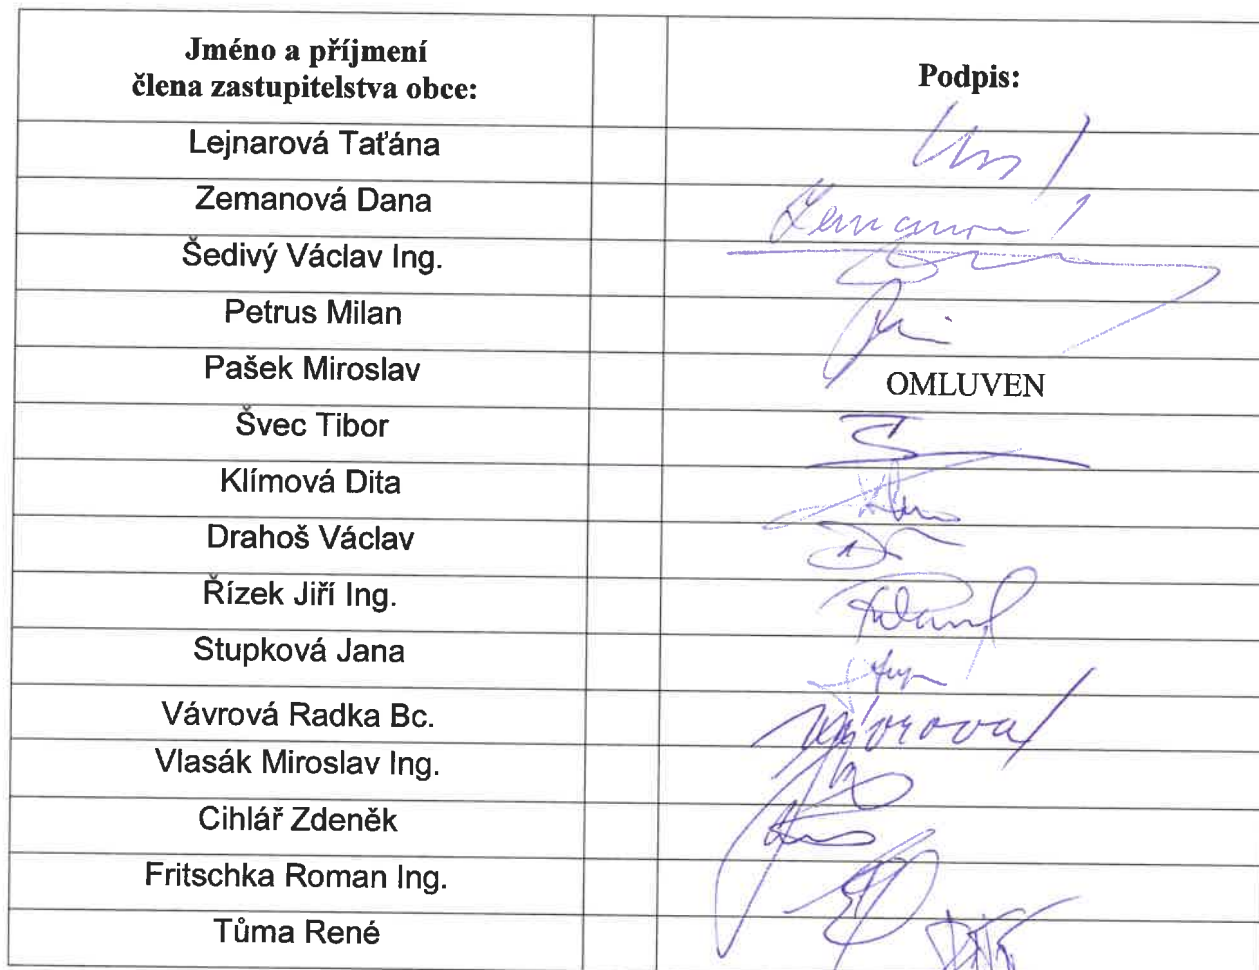 Jméno a příjmení
člena zastupitelstva obce:
Podpis:
Lejnarová Taťána
Zemanová Dana
Zemanová
Šedivý Václav Ing.
Petrus Milan
Pašek Miroslav
OMLUVEN
Švec Tibor
Klímová Dita
Drahoš Václav
Řízek Jiří Ing.
Stupková Jana
Vávrová Radka Bc.
Vávrová
Vlasák Miroslav Ing.
Cihlář Zdeněk
Fritschka Roman Ing.
Tůma René